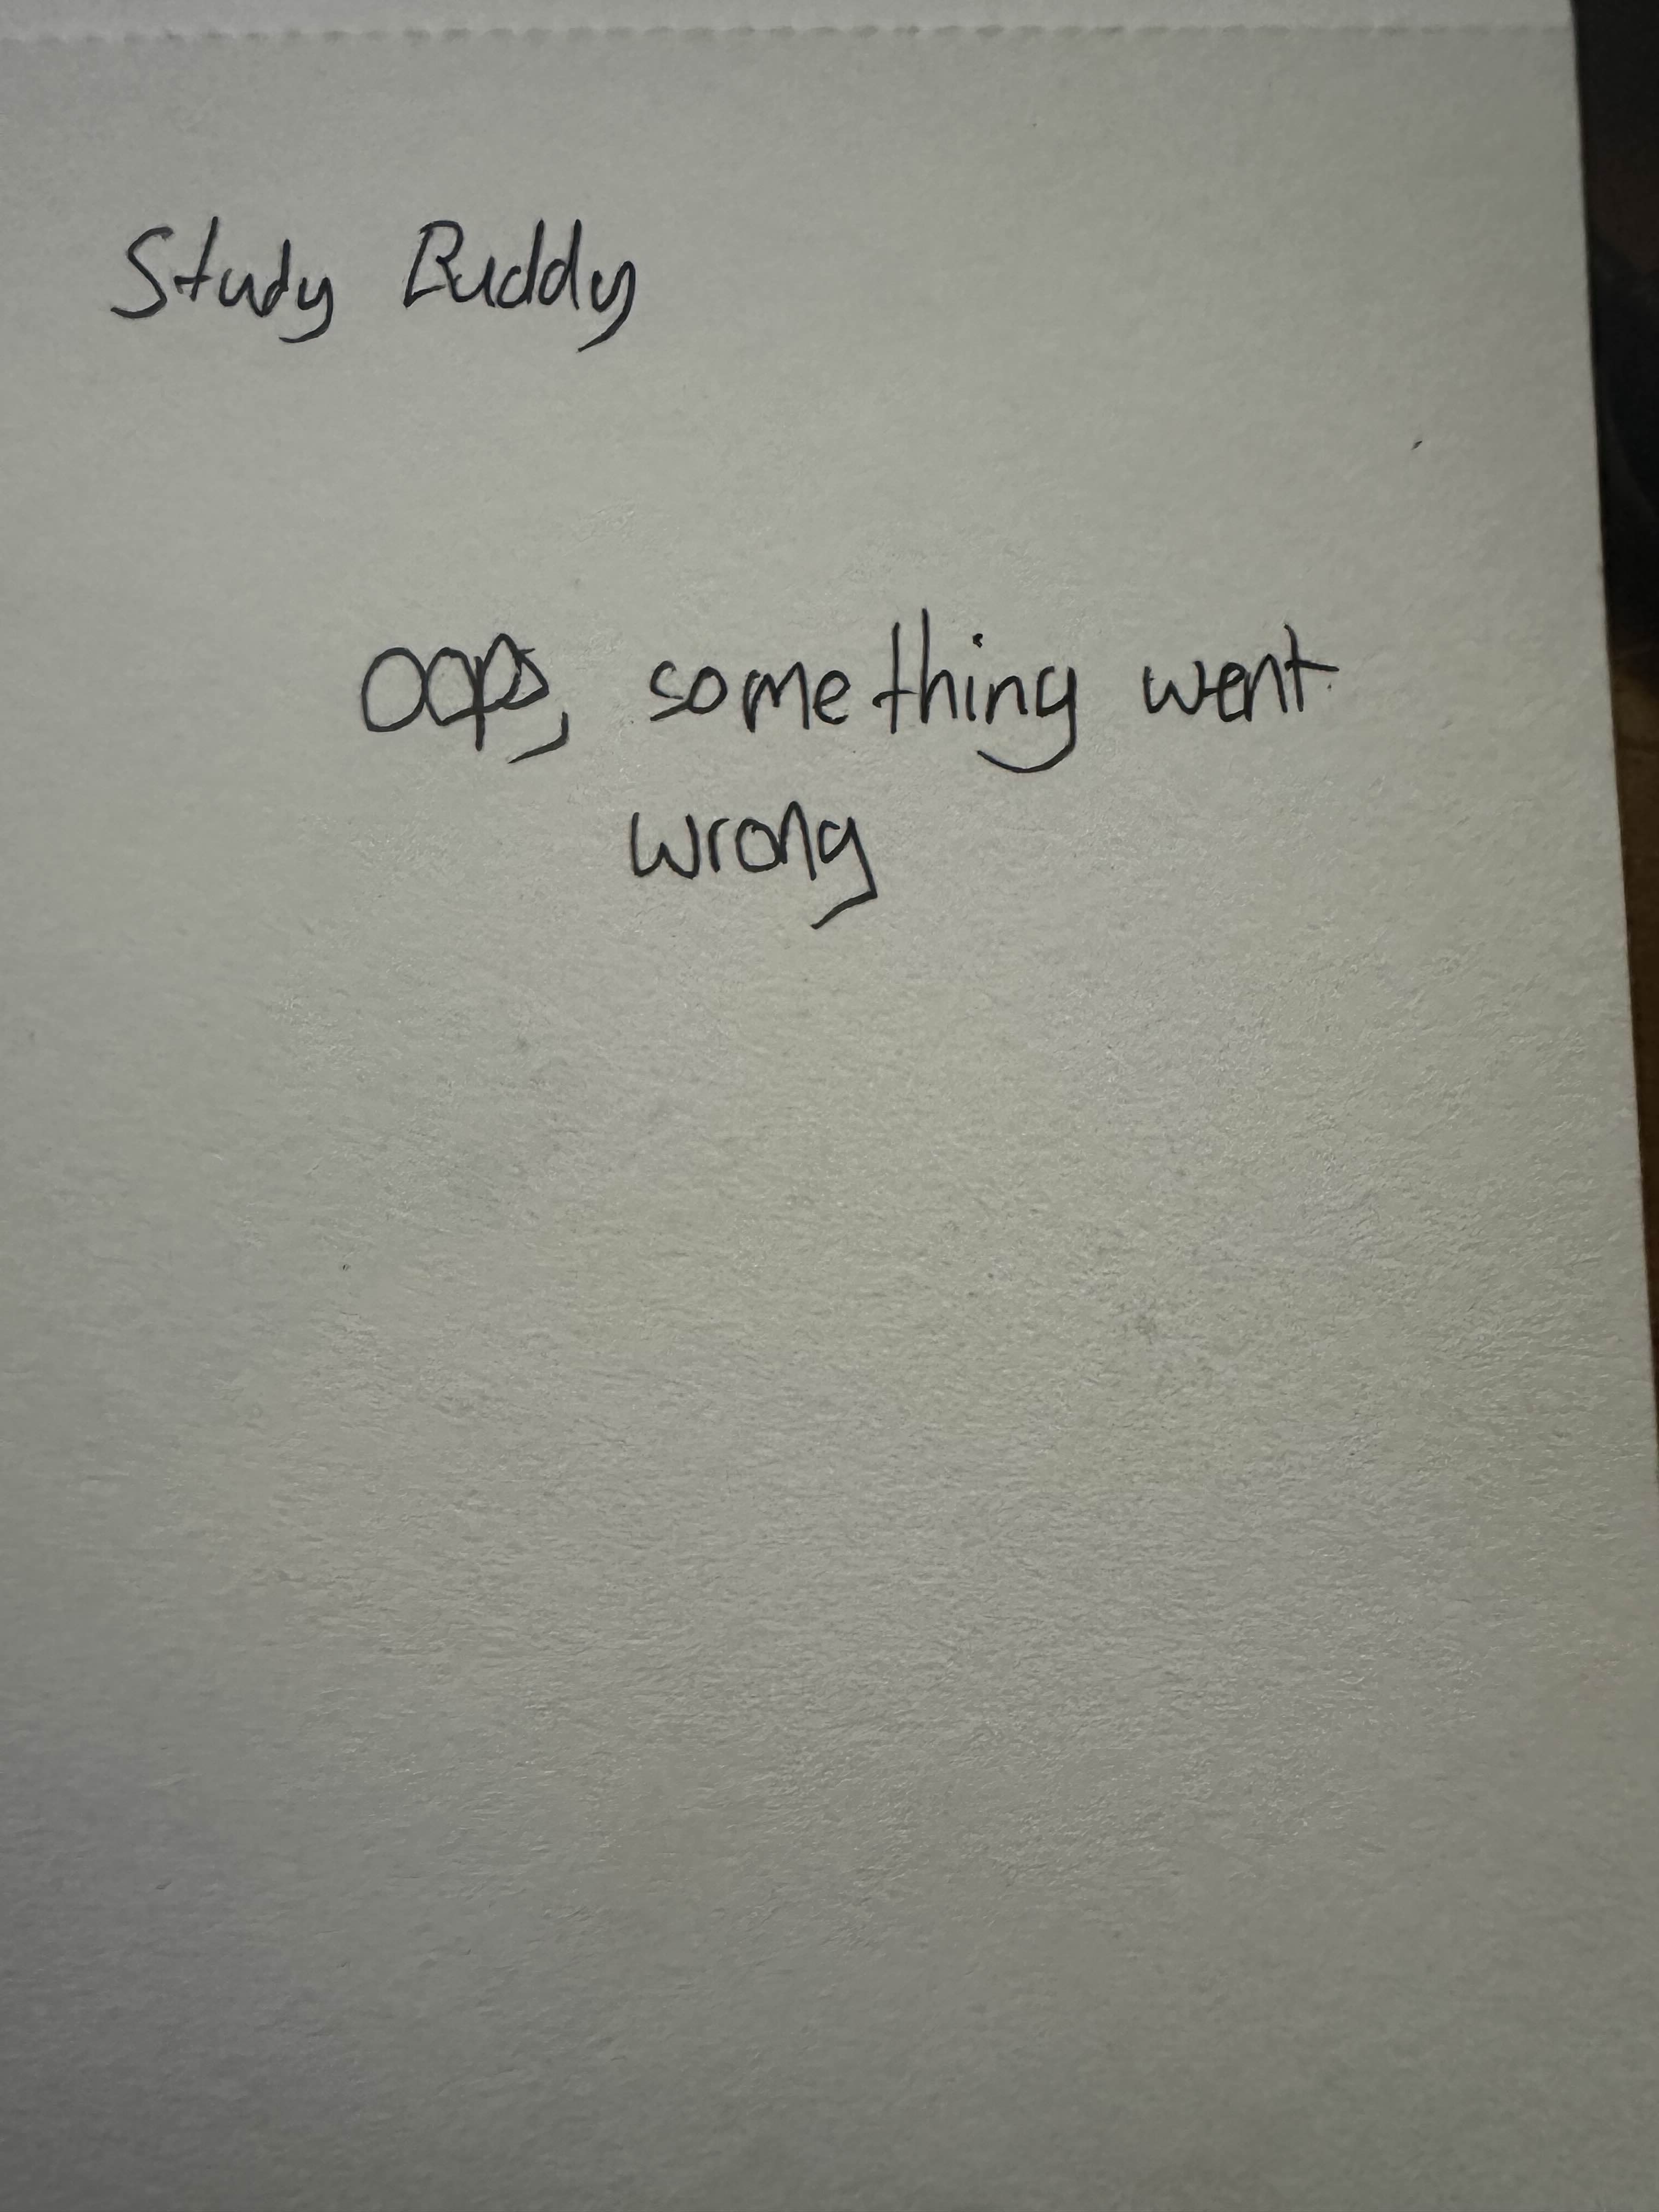 Study Buddy
oops, something went
wrong